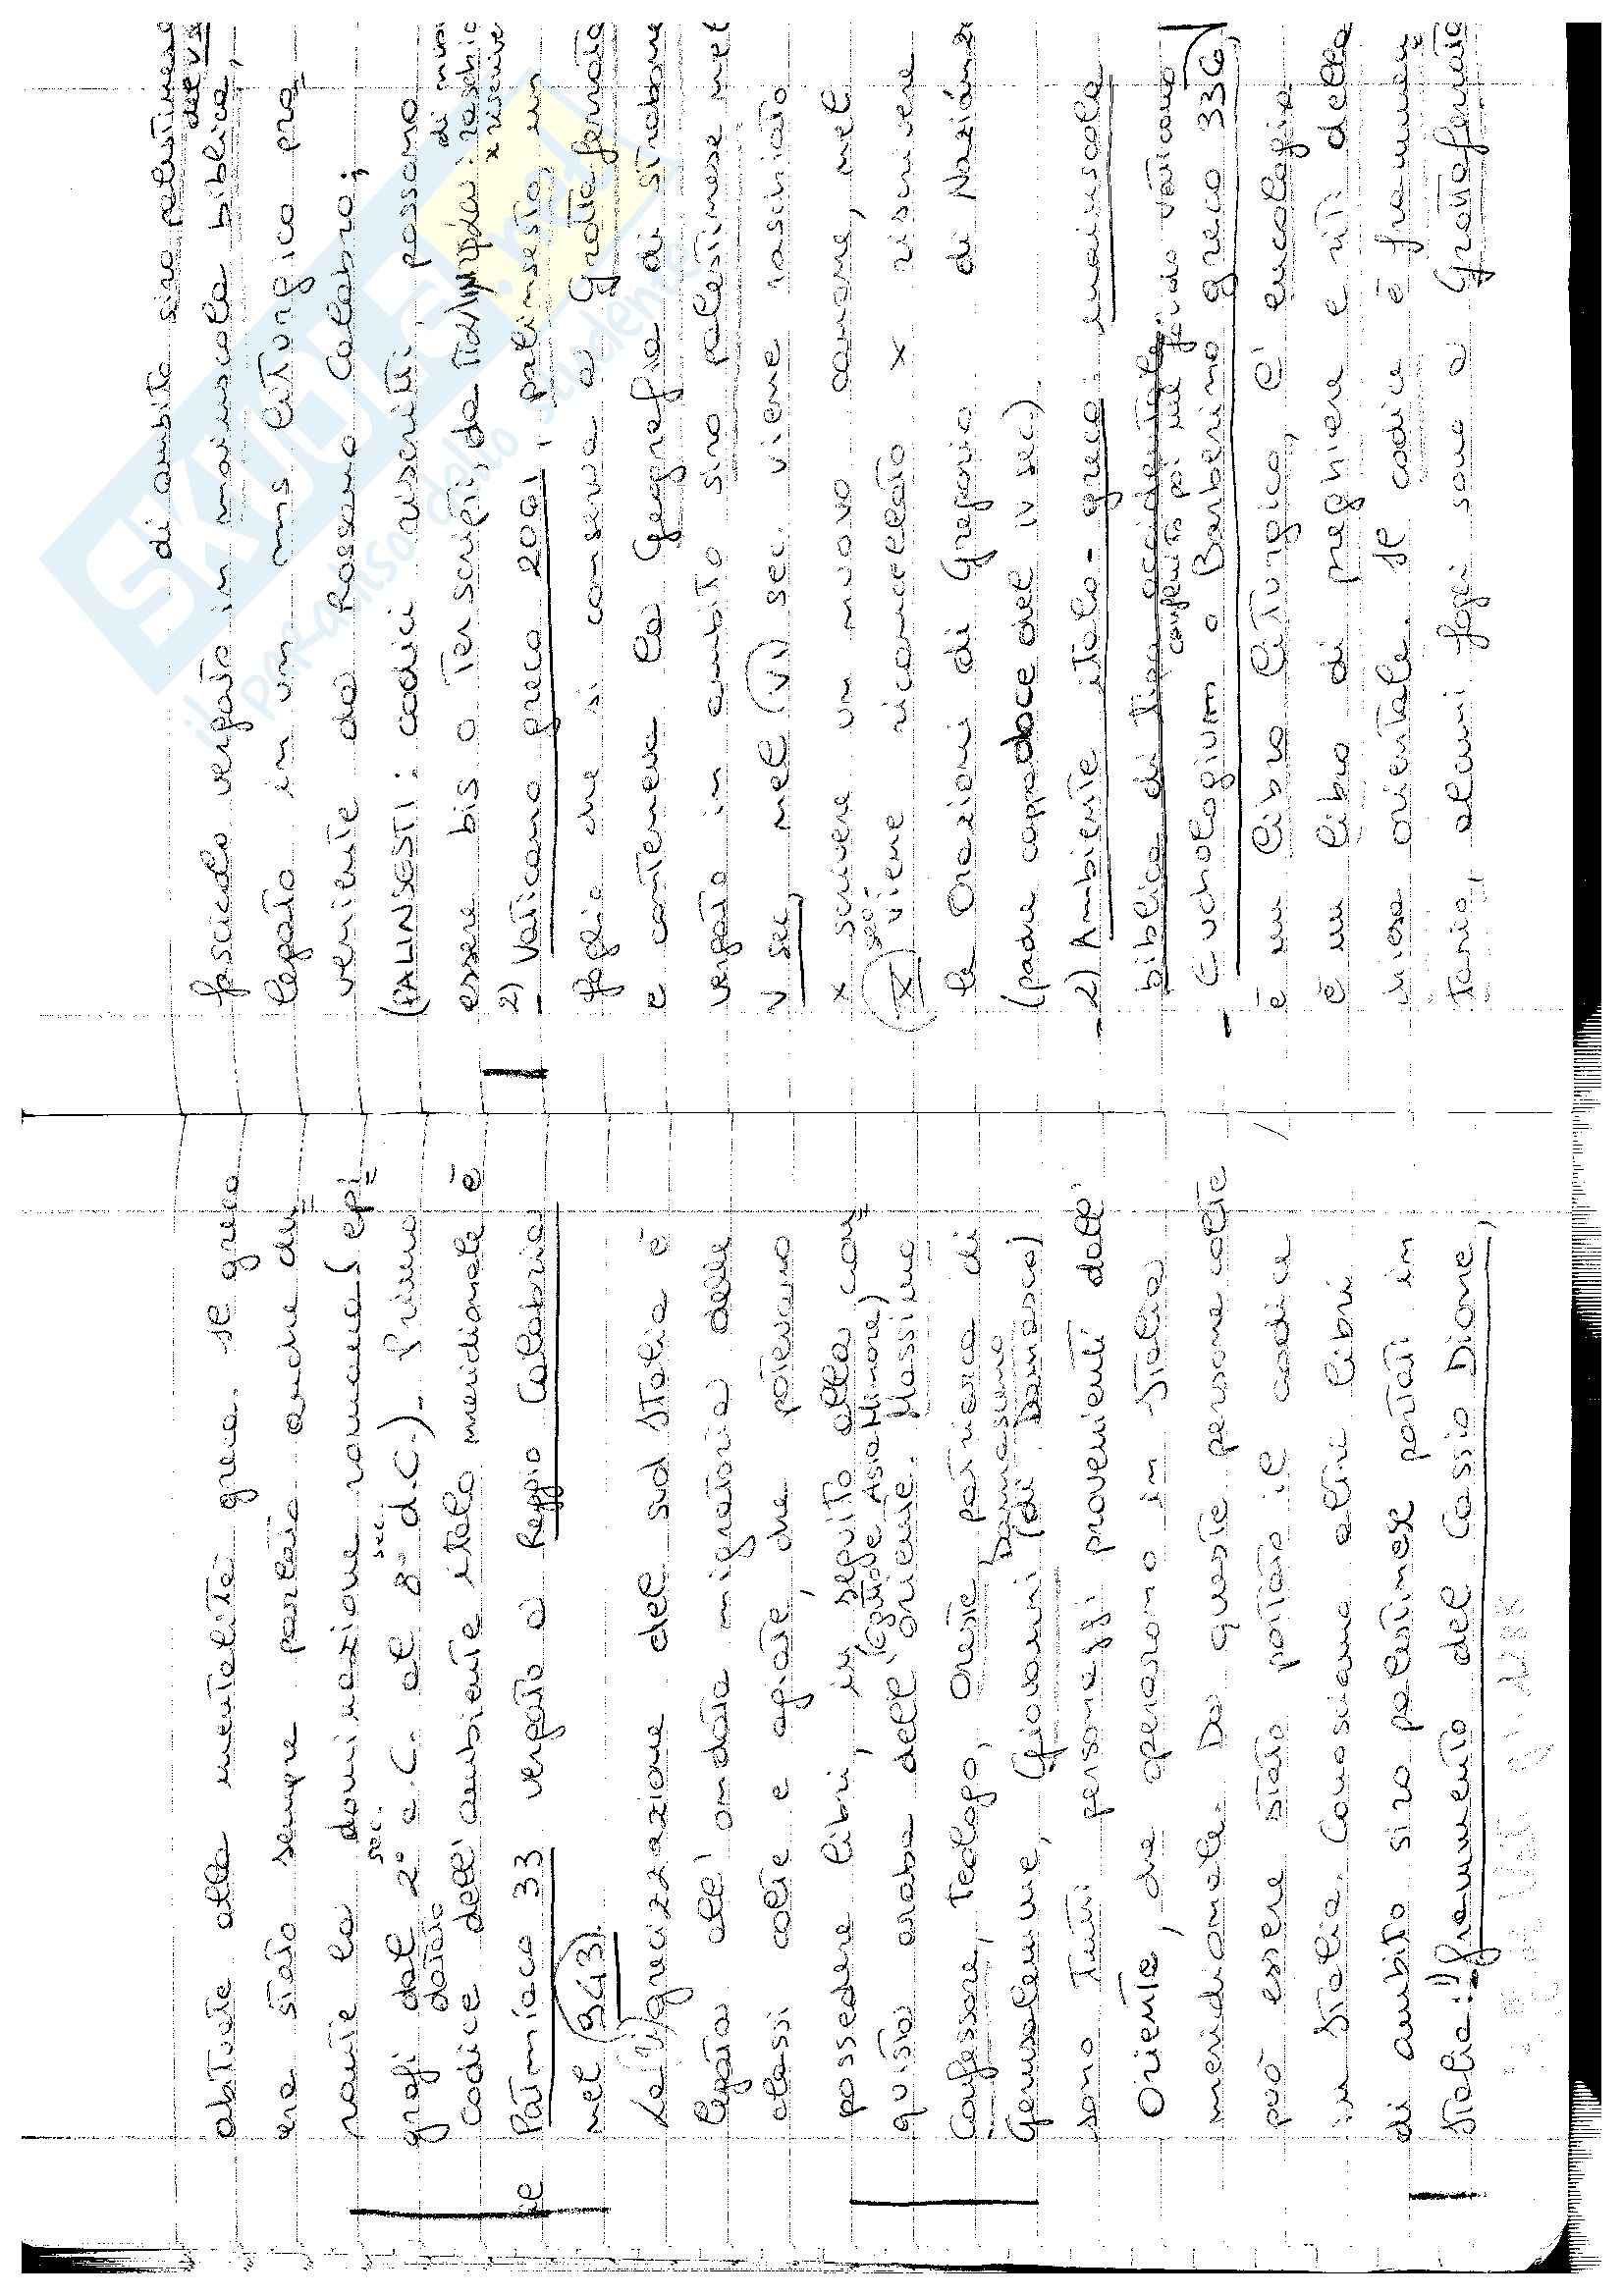 abituate alla mentalità greca. Il greco
era stato sempre parlato anche du=
rante la dominazione romana (epi=
grafi dal 2° sec. a.C. al 8° sec. d.C.). Primo
codice datato dell'ambiente italo meridionale è
il Patmiaco 33 vergato a Reggio Calabria
nel (943).
La grecizzazione del sud Italia è
legata all'ondata migratoria delle
classi colte e agiate, che potevano
possedere libri, in seguito alla con=
quista araba dell'Oriente. (egitto e Asia Minore) Massimo
Confessore, teologo, Oreste, patriarca di
Gerusalemme, Giovanni Damasceno (di Damasco)
sono tutti personaggi provenienti dall'
Oriente, che operarono in Italia
meridionale. Da queste persone colte
può essere stato portato il codice
in Italia. Conosciamo altri libri
di ambito siro palestinese portati in
Italia: 1) frammento del Cassio Dione,
di ambito siro palestinese
fascicolo vergato in maiuscola biblica,
legato in un ms liturgico pro=
veniente da Rossano Calabro;
(PALINSESTI: codici riscritti, possono
essere bis o ter scripti, da πάλιν ψάω: raschio
di nuovo
x riscrivere
2) Vaticano greco 2061, palinsesto, un
foglio che si conserva a Grottaferrata
e conteneva la Geografia di Strabone
vergata in ambito siro palestinese nel
V sec, nel (VI) sec. viene raschiato
x scrivere un nuovo canone, nel
(X) sec. viene ricancellato x riscrivere
le Orazioni di Gregorio di Nazianzo
(padre cappadoce del IV sec).
2) Ambiente italo-greco: maiuscola
biblica di tipo occidentale
Euchologium o Barberino greco 336,
è un libro liturgico, è eucologio
è un libro di preghiere e riti della
chiesa orientale. Il codice è frammen=
tario, alcuni fogli sono a Grottaferrata
SKUOLA.net
il paradiso dello studente